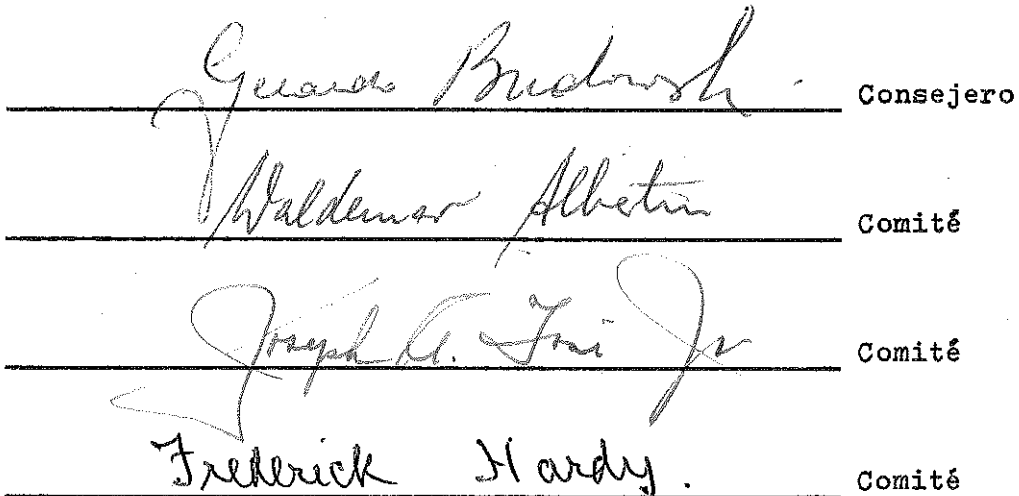 Gerardo Budowski Consejero
Waldemar Albertin Comité
Joseph A. Tosi Jr Comité
Frederick Hardy. Comité